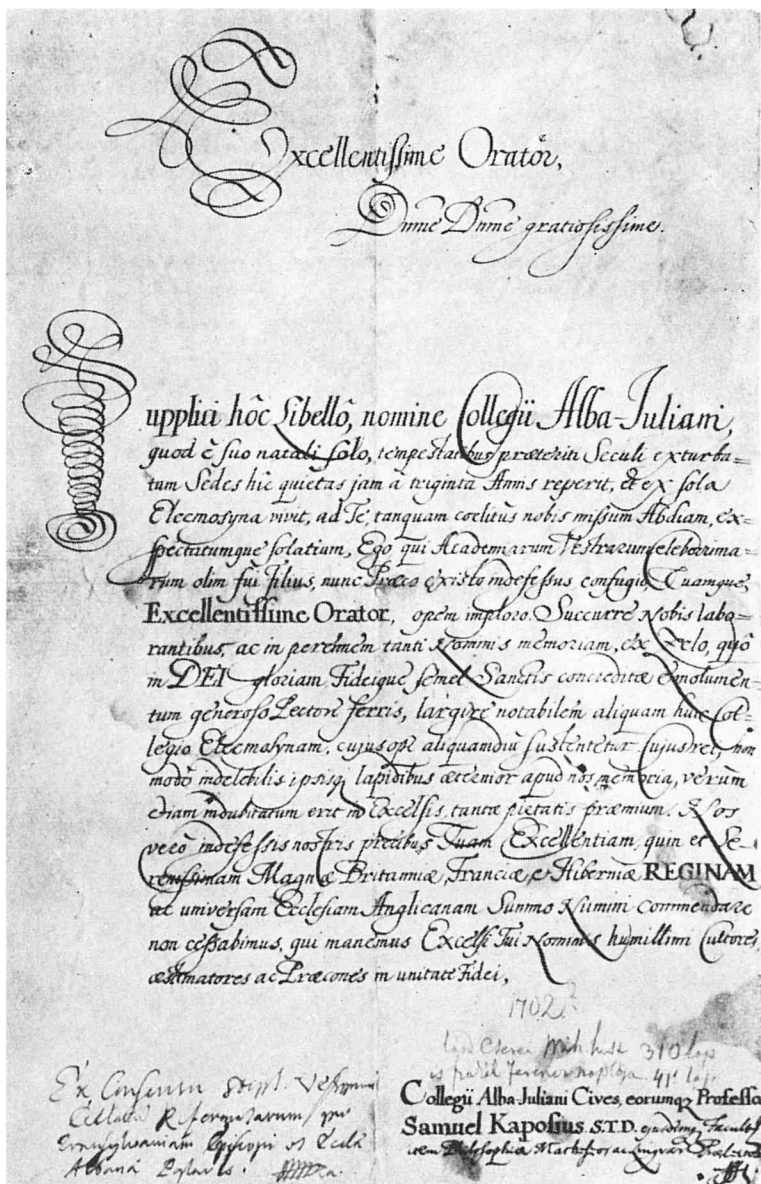 Excellentissime Orator,
Dnne Dnne gratiosissime.
Supplici hôc Libellô, nomine Collegii Alba-Juliani,
quod è suo natali solo, tempestatibus præteriti Seculi exturba=
tum Sedes hîc quietas jam à triginta Annis reperit, et ex sola
Eleemosyna vivit, ad Te, tanquam coelitus nobis missum Abdiam, ex-
spectatumque solatium, Ego qui Academiarum Vestrarum celeberrima-
rum olim fui Filius, nunc Præco existo indefessus confugio, Tuamque,
Excellentissime Orator, opem imploro. Succurre Nobis labo-
rantibus, ac in perennem tanti Nominis memoriam, ex Zelo, quô
in DEI gloriam Fideique semel Sanctis concreditæ emolumen-
tum generoso Pectore ferris, largire notabilem aliquam huic Col-
legio Eleemosynam, cujus ope aliquamdiu sustentetur. Cujus rei, non
modò indelebilis ipsisq lapidibus æternior apud nos memoria, verùm
etiam indubitatum erit in Excelsis, tantæ pietatis præmium. Nos
verò indefessis nostris precibus Tuam Excellentiam, quin et Se-
renissimam Magnæ Britanniæ, Franciæ, et Hiberniæ REGINAM
ac universam Ecclesiam Anglicanam Summo Numini commendare
non cessabimus, qui manemus Excelsi Tui Nominis humillimi Cultores,
æstimatores ac Præcones in unitate Fidei,
1702
Cserei Mih 310 lap
is 41 lap
Collegii Alba-Juliani Cives, eorumq Professor
Samuel Kaposius S.T.D. ejusdemq Facult
item Philosophiæ ac Linguar
Ex Consensu
Transylvaniam Episcopi et
Albana